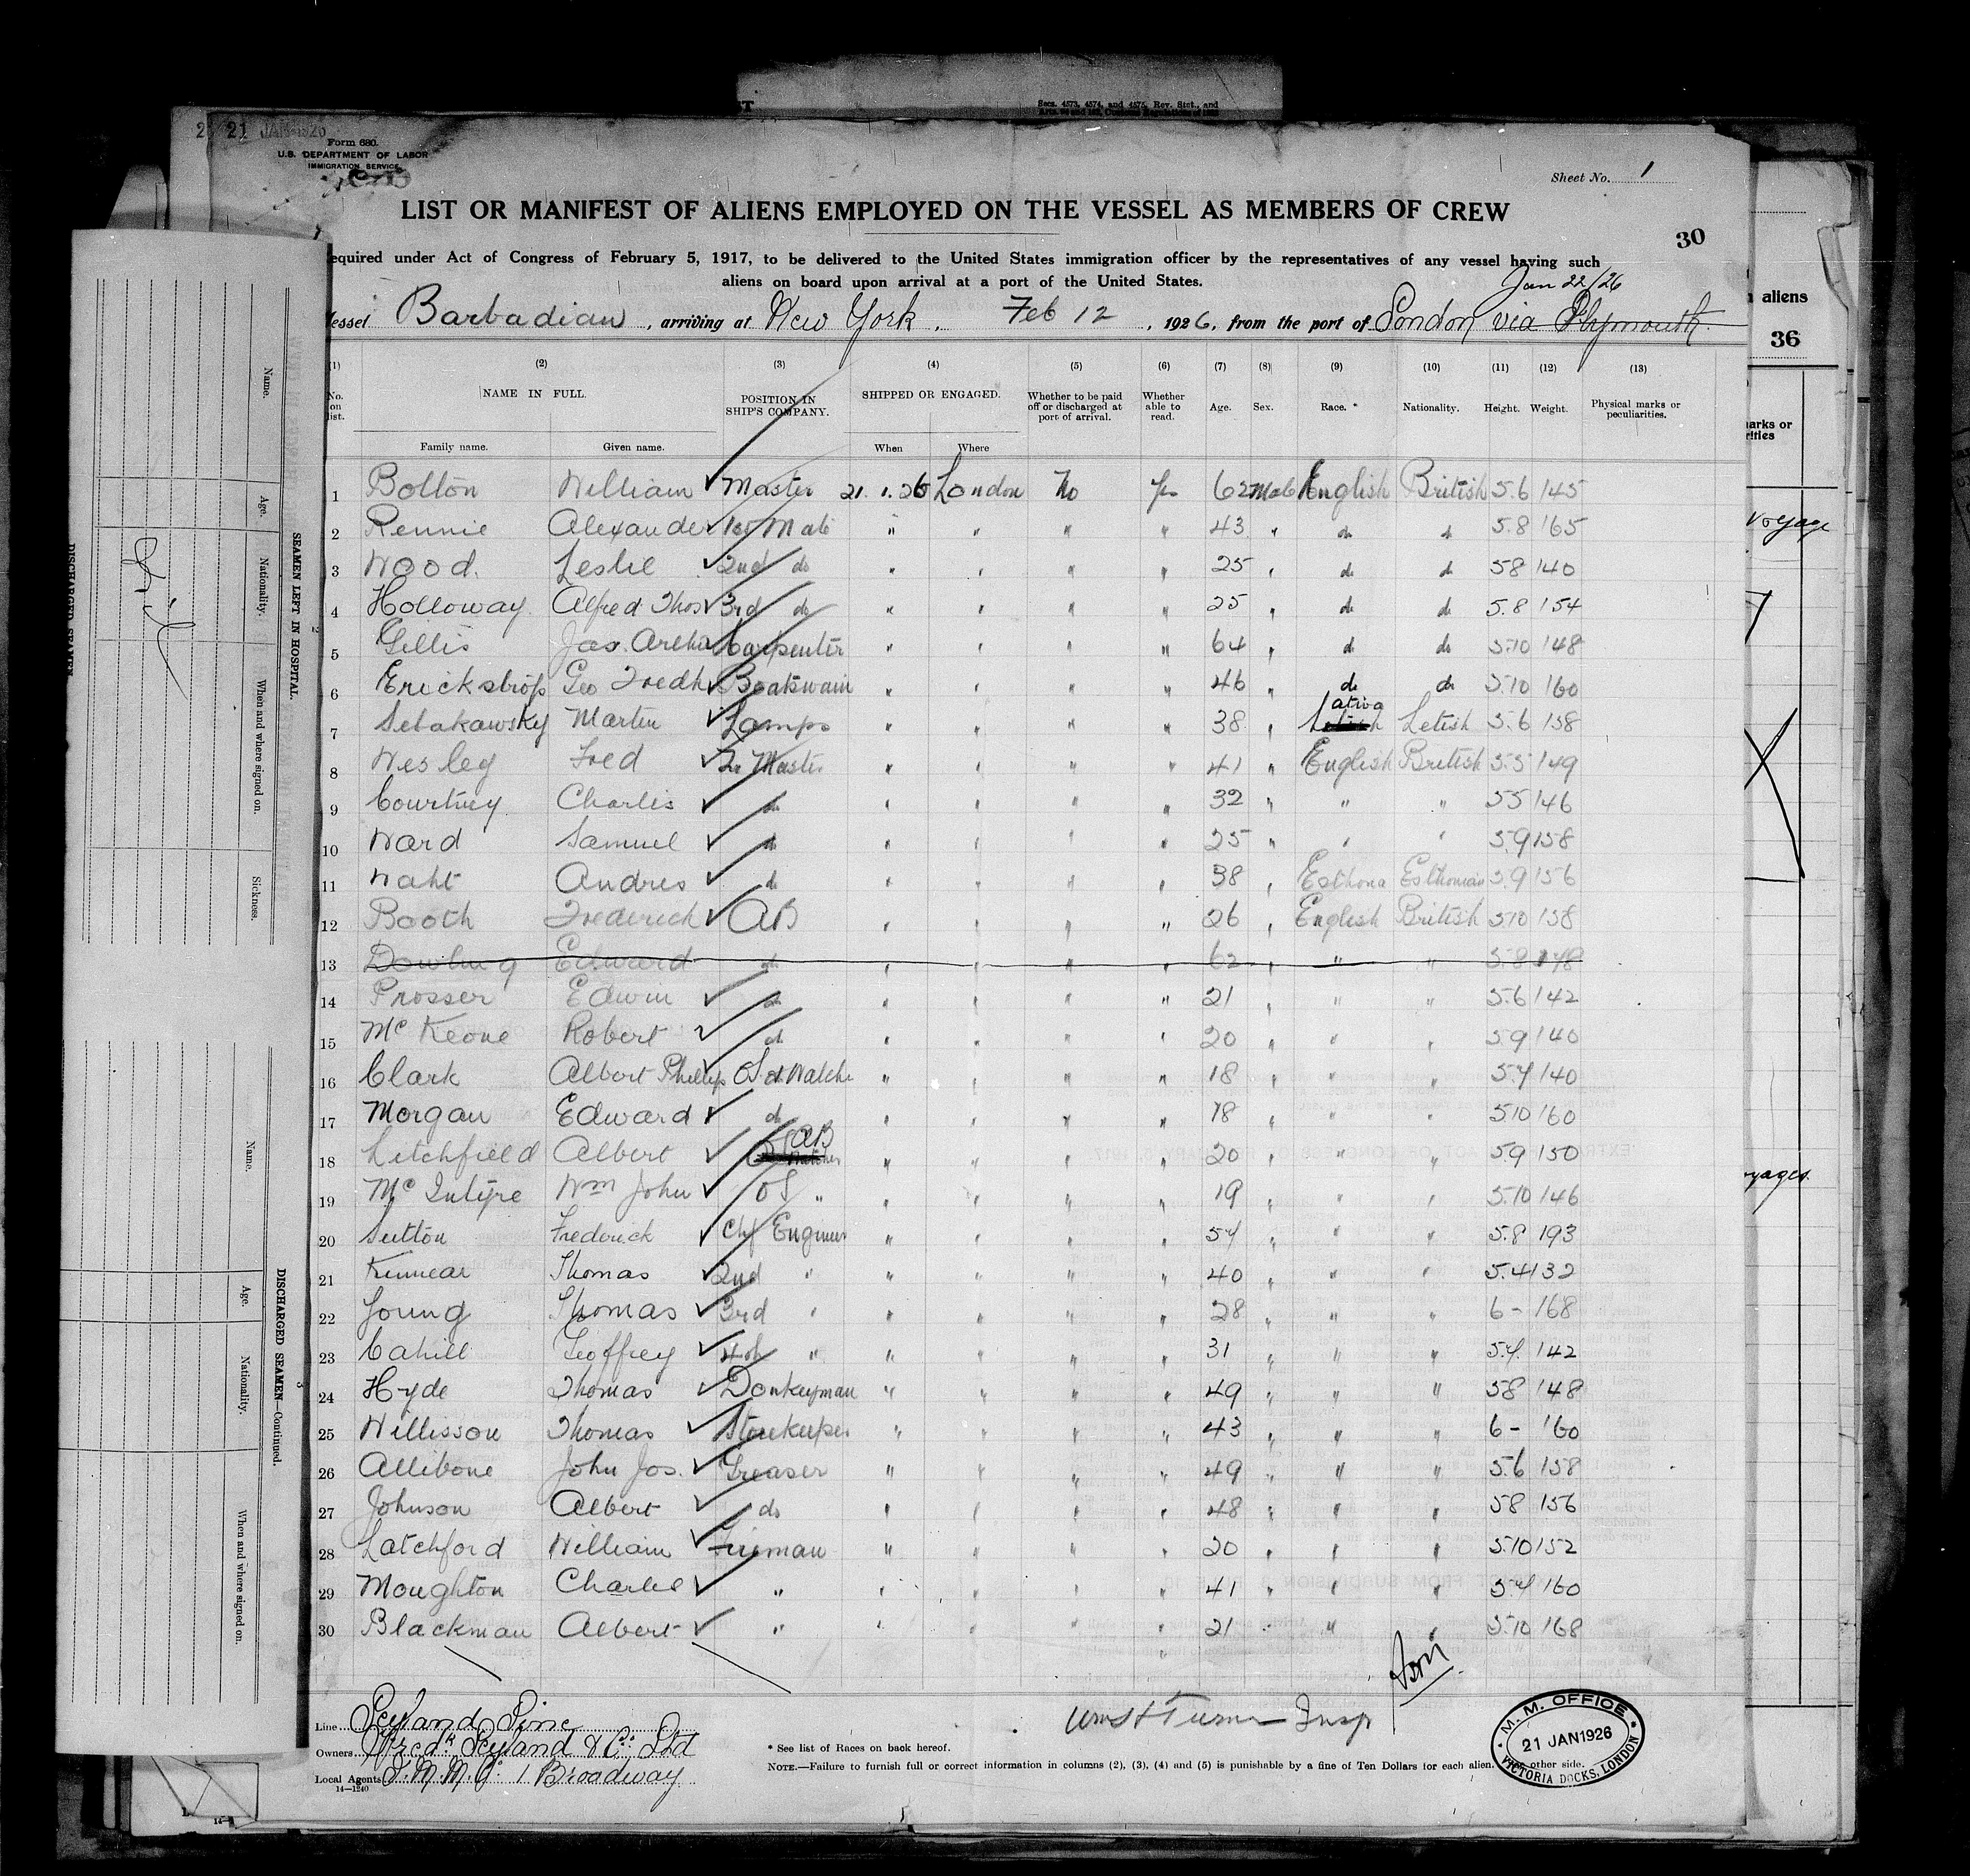 Secs. 4573, 4574, and 4575, Rev. Stat., and
21 JAN 1926
Form 680.
U.S. DEPARTMENT OF LABOR
IMMIGRATION SERVICE
Sheet No. 1
LIST OR MANIFEST OF ALIENS EMPLOYED ON THE VESSEL AS MEMBERS OF CREW
30
equired under Act of Congress of February 5, 1917, to be delivered to the United States immigration officer by the representatives of any vessel having such
aliens on board upon arrival at a port of the United States.
Jan 22/26
essel Barbadian, arriving at New York, Feb 12, 1926, from the port of London via Plymouth
aliens
36
(1) (2) (3) (4) (5) (6) (7) (8) (9) (10) (11) (12) (13)
No. on list. NAME IN FULL. POSITION IN SHIP'S COMPANY. SHIPPED OR ENGAGED. Whether to be paid off or discharged at port of arrival. Whether able to read. Age. Sex. Race.* Nationality. Height. Weight. Physical marks or peculiarities.
Family name. Given name. When Where
1 Bolton William Master 21.1.26 London No Yes 62 Male English British 5.6 145
2 Rennie Alexander 1st Mate " " " " 43 " do do 5.8 165
3 Wood. Leslie 2nd do " " " " 25 " do do 58 140
4 Holloway Alfred Thos 3rd do " " " " 25 " do do 5.8 154
5 Gillis Jas. Arthur Carpenter " " " " 64 " do do 5.10 148
6 Erickstrop Geo Fredk Boatswain " " " " 46 " do do 5.10 160
7 Sebakawsky Martin Lamps " " " " 38 " Latvia Letish 5.6 158
8 Wesley Fred Qr Master " " " " 41 " English British 5.5 149
9 Courtney Charles do " " " " 32 " " " 55 146
10 Ward Samuel do " " " " 25 " " " 5.9 158
11 Naht Andres do " " " " 38 " Esthona Esthonian 5.9 156
12 Booth Frederick AB " " " " 26 " English British 5.10 158
13 Dowling Edward do " " " " 62 " " " 5.8 148
14 Prosser Edwin do " " " " 21 " " " 5.6 142
15 Mc Keone Robert do " " " " 20 " " " 59 140
16 Clark Albert Phillip OS dk Watche " " " " 18 " " " 5.4 140
17 Morgan Edward do " " " " 18 " " " 5.10 160
18 Litchfield Albert AB " " " " 20 " " " 5.9 150
19 Mc Intyre Wm John OS " " " " " 19 " " " 5.10 146
20 Sutton Frederick Chf Engineer " " " " 54 " " " 5.8 193
21 Kinnear Thomas 2nd " " " " " 40 " " " 5.4 132
22 Young Thomas 3rd " " " " " 28 " " " 6 - 168
23 Cahill Geoffrey 4th " " " " " 31 " " " 5.4 142
24 Hyde Thomas Donkeyman " " " " 49 " " " 58 148
25 Willisson Thomas Storekeeper " " " " 43 " " " 6 - 160
26 Allibone John Jos. Greaser " " " " 49 " " " 5.6 158
27 Johnson Albert do " " " " 48 " " " 58 156
28 Latchford William Fireman " " " " 20 " " " 5.10 152
29 Moughton Charlie " " " " " 41 " " " 5.4 160
30 Blackman Albert " " " " " 21 " " " 5.10 168
Line Leyland Line
Owners Fredk Leyland & Co. Ltd
Local Agents I.M.M. Co 1 Broadway
14—1240
Turner Insp
* See list of Races on back hereof.
NOTE.—Failure to furnish full or correct information in columns (2), (3), (4) and (5) is punishable by a fine of Ten Dollars for each alien. other side.
M. M. OFFICE
21 JAN 1926
VICTORIA DOCKS, LONDON
Name.
Age.
Nationality.
When and where signed on.
Sickness.
SEAMEN LEFT IN HOSPITAL.
DISCHARGED SEAMEN
Name.
Age.
Nationality.
When and where signed on.
DISCHARGED SEAMEN—Continued.
voyage